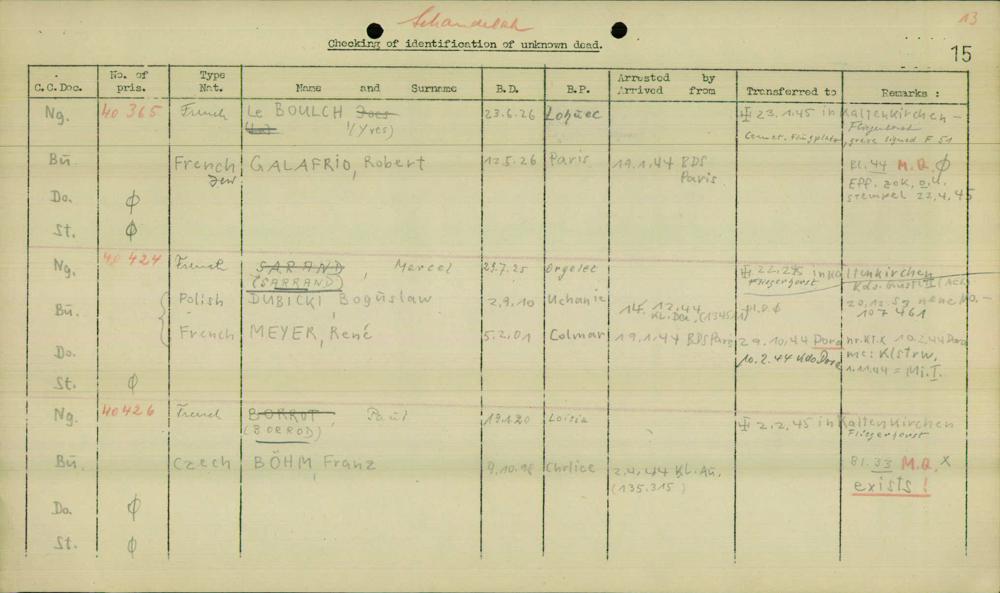 Schandelah
13
Checking of identification of unknown dead.
15
C.C.Doc. No. of pris. Type Nat. Name and Surname B.D. B.P. Arrested by Arrived from Transferred to Remarks :
Ng. 40 365 French Le BOULCH 23.6.26 Lohuec 23.1.45 in Kaltenkirchen –
(Yves) Fliegerhorst
grave signed F 51
Bü French GALAFRIO, Robert 12.5.26 Paris 19.1.44 BDS Bl. 44 M.Q. ϕ
Jew Paris Eff. zok, o.U.
Do. ϕ stempel 22.4.45
St. ϕ
Ng. 40 424 French SARAND, Marcel 29.7.25 Orgelet 22.2.45 in Kaltenkirchen
(SARRAND) Fliegerhorst
Bü. Polish DUBICKI, Bogusław 2.9.10 Uchanie 14.12.44 20.12.59 neue No. –
107 461
French MEYER, René 5.2.01 Colmar 19.1.44 BDS Paris 29.10.44 Dora hr.Kt.K 10.2.44 Dora
Do. 10.2.44 Kdo Dora mc: Klstrw.
St. ϕ 1.11.44 = Mi.I.
Ng. 40426 French BORROT, Paul 19.1.20 Loisia 2.2.45 in Kaltenkirchen
(BORROD) Fliegerhorst
Bü. Czech BÖHM, Franz 9.10.98 Chrlice 2.4.44 Kl. Au. Bl. 33 M.Q. x
(135.315) exists !
Do. ϕ
St. ϕ